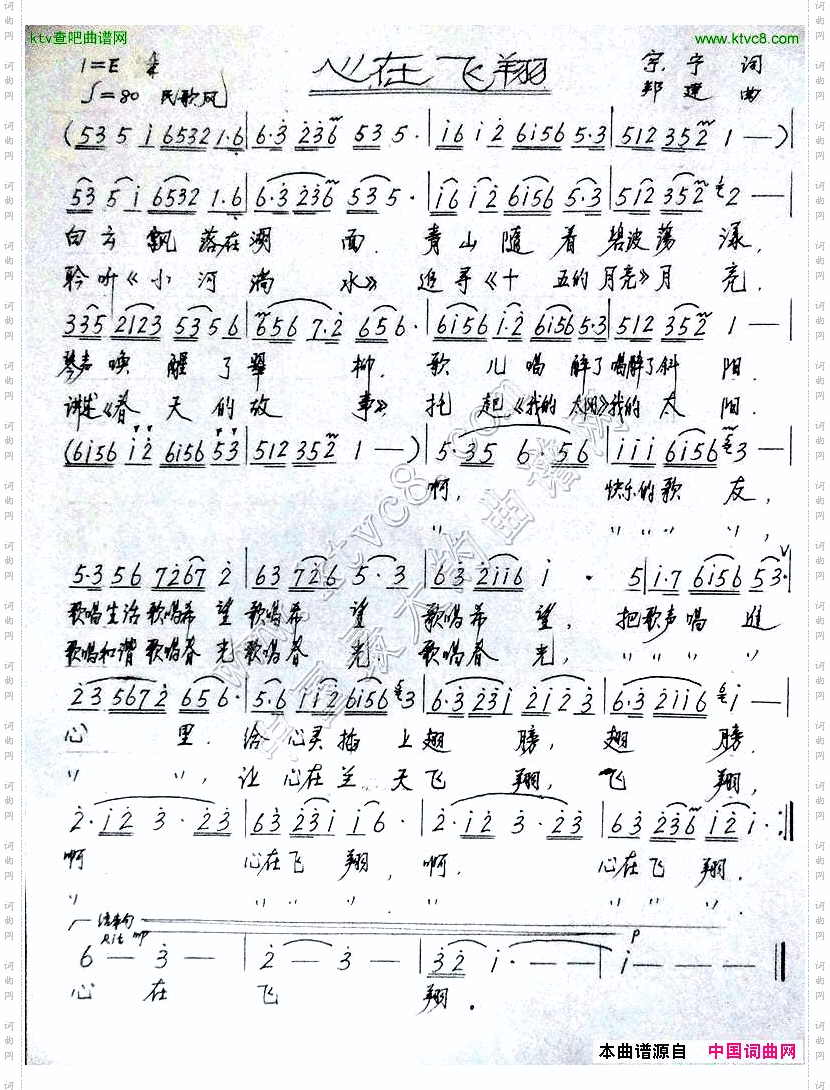 ktv查吧曲谱网 www.ktvc8.com
1=E
♩=80 民歌风
心在飞翔
宗宁 词
邦建 曲
(535 i6532 1·6 | 6·3 236 535· | i6i2 6i565·3 | 512352 1—)
535i6532 1·6 | 6·3 236 535· | i6i2 6i565·3 | 512352 2—
白云飘落在湖面.青山随着碧波荡漾,
聆听《小河淌水》追寻《十五的月亮》月亮,
335 2123 5356 | 656 7·2 656· | 6i56i·2 6i565·3 | 512352 1— |
琴声唤醒了翠柳.歌儿唱醉了唱醉了斜阳.
讲述《春天的故事》,托起《我的太阳》我的太阳.
(6i56i2 6i5653 | 512352 1—) | 5·35 6·56 | iii6i56 3— |
啊,快乐的歌友,
〃 〃〃〃〃,
5·356 72672 | 63726 5·3 | 632ii6 i· 5 | i·7 6i56 53·
歌唱生活歌唱希望歌唱希望 歌唱希望,把歌声唱进
歌唱和谐歌唱春光歌唱春光,歌唱春光,〃〃〃〃
235672 656· | 5·6 ii2 6i563 | 6·3 23i 2i2· | 6·3 2ii6 i—
心里.给心灵插上翅膀,翅膀.
〃〃,让心在兰天飞翔,飞翔,
2·i2 3·23 | 6323i ii6· | 2·i2 3·23 | 63236 i2i· :||
啊 心在飞翔,啊.心在飞翔.
〃 〃〃〃〃,〃.〃〃〃〃.
结束句
Rit mp p
6—3— | 2—3— | 32 i·— | i— ||
心在飞翔.
www.ktvc8.com
本曲谱源自 中国词曲网
词曲网